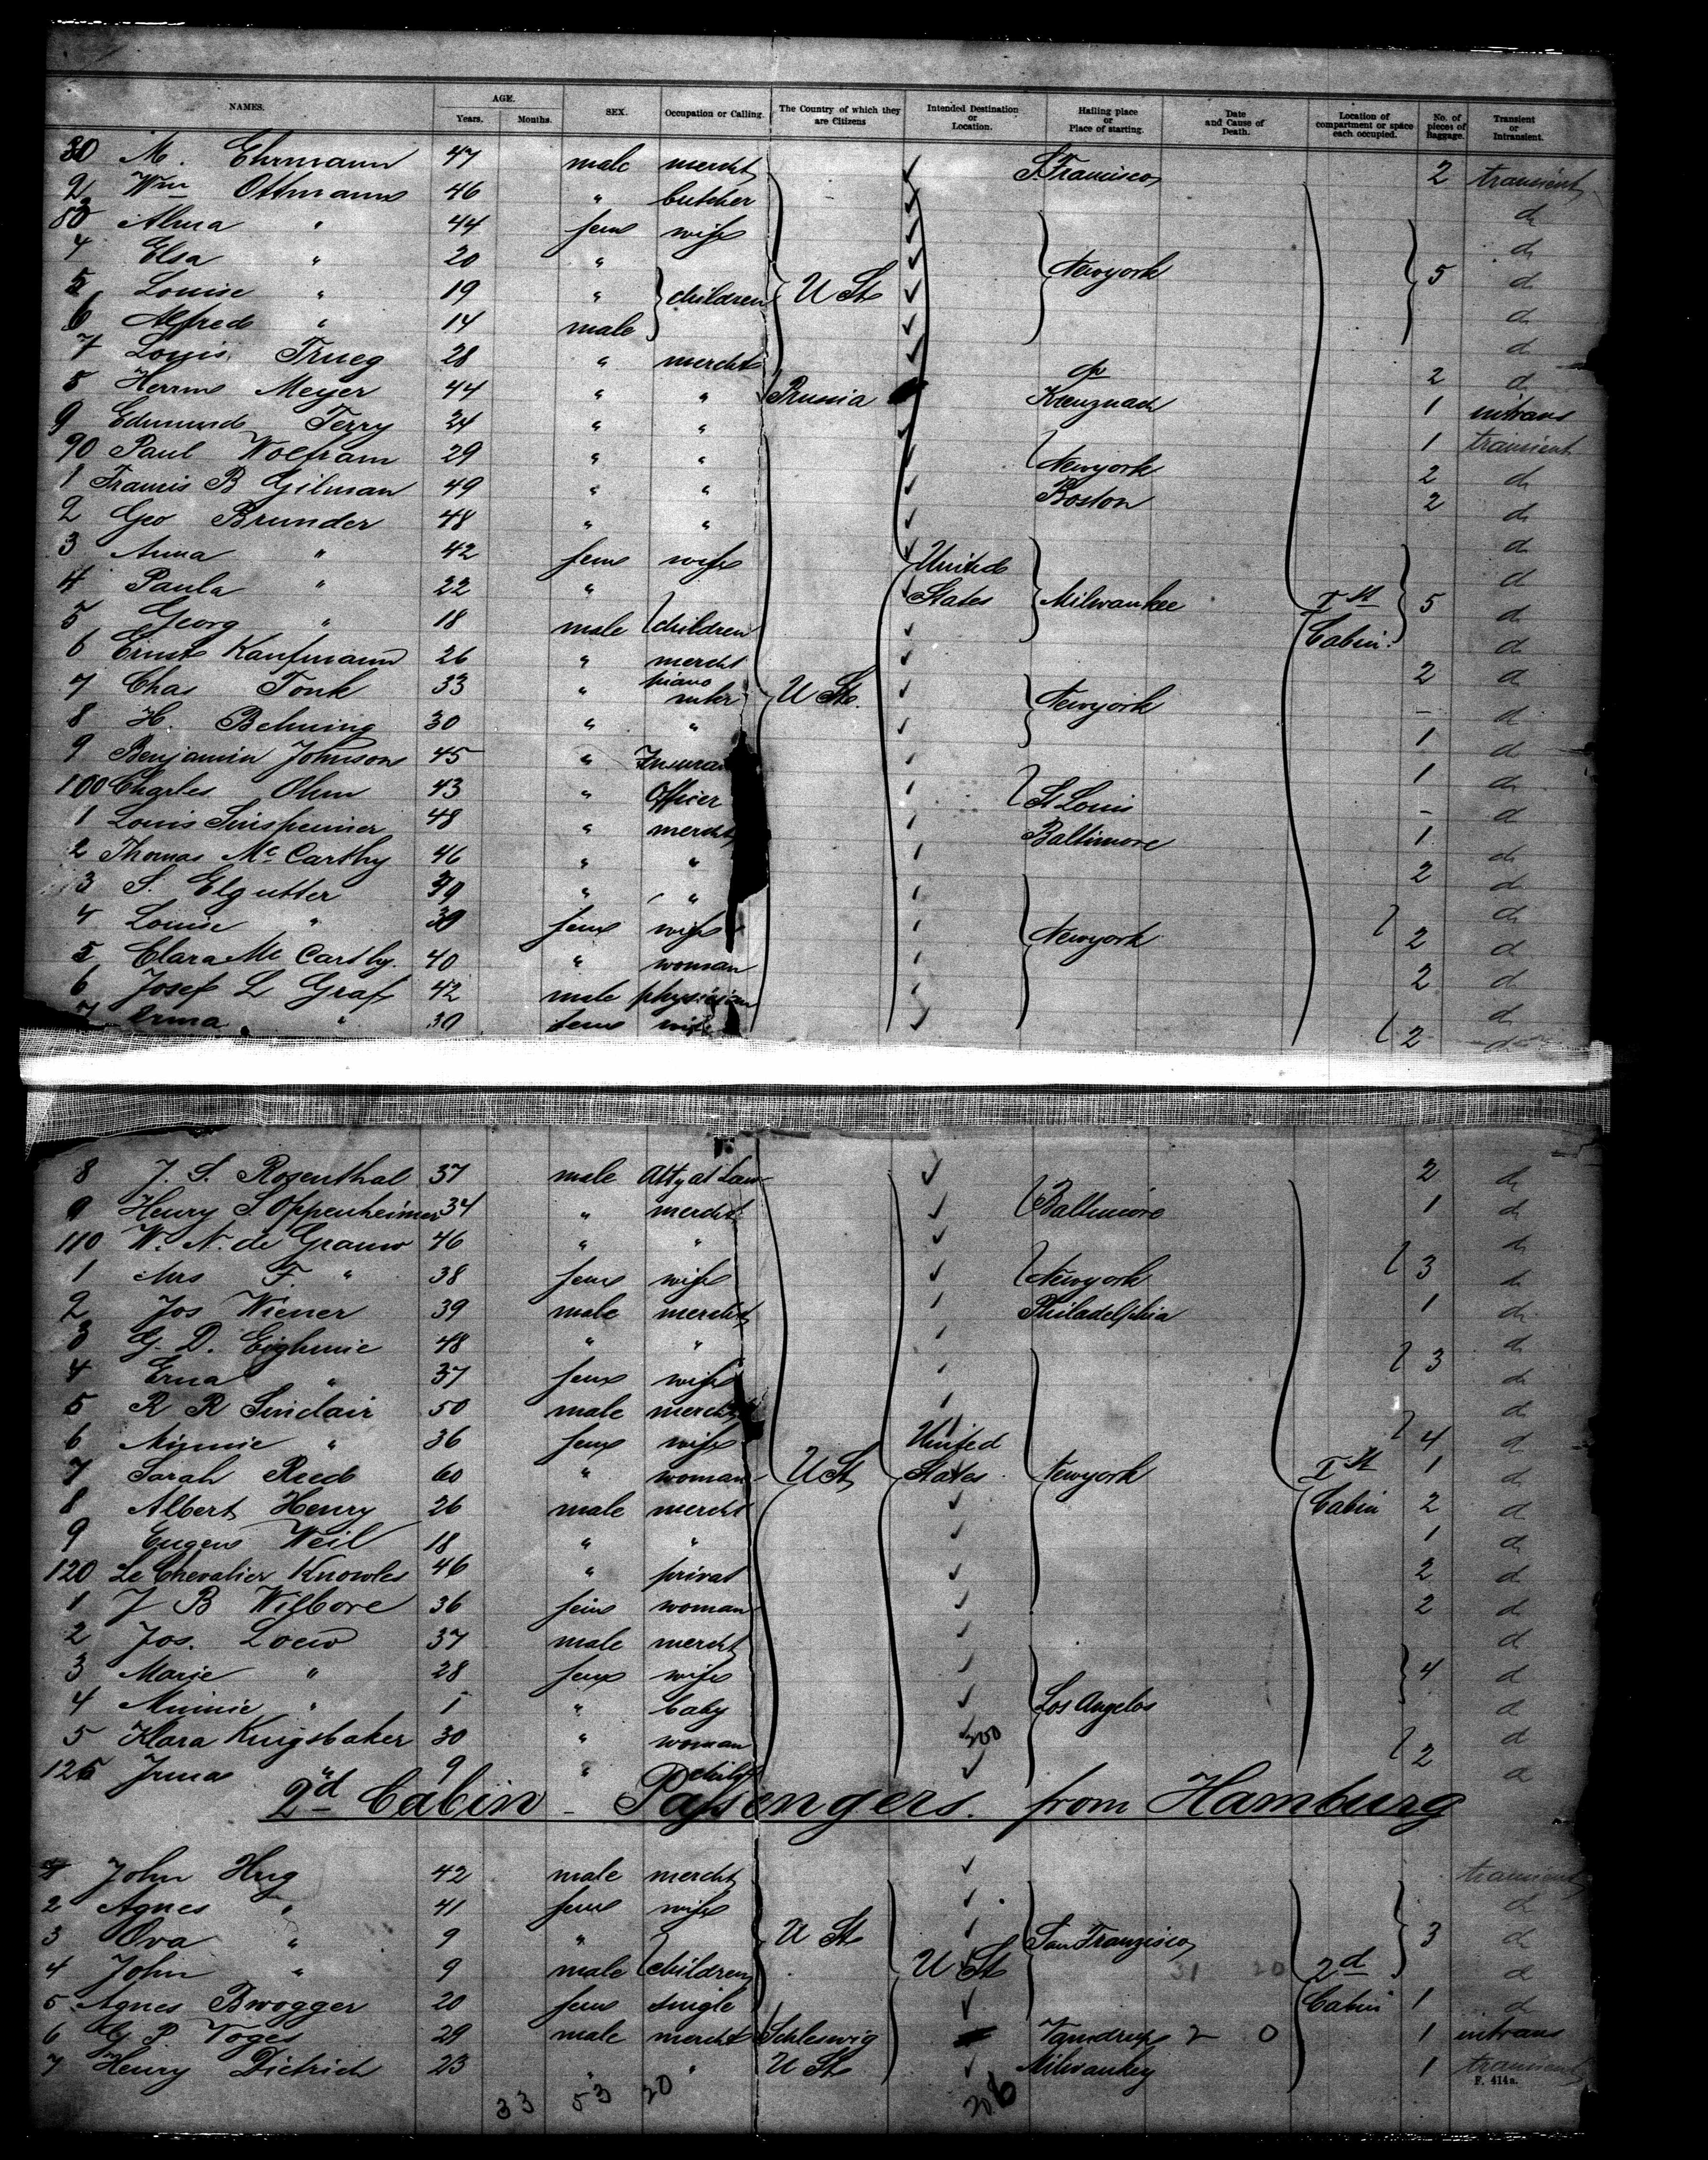 NAMES. AGE. Years. Months. SEX. Occupation or Calling. The Country of which they are Citizens Intended Destination or Location. Hailing place or Place of starting. Date and Cause of Death. Location of compartment or space each occupied. No. of pieces of Baggage. Transient or Intransient.
30 M. Ehrmann 47 male mercht S. Francisco 2 transient
2 Wm Ottmann 46 " butcher d
80 Alma " 44 fem wife d
4 Elsa " 20 " Newyork 5 d
5 Louise " 19 " children U St d
6 Alfred " 14 male d
7 Louis Trueg 28 " mercht do 2 d
8 Herm Meyer 44 " " Prussia Kreuznach 1 intrans
9 Edmund Terry 24 " " 1 transient
90 Paul Wolfram 29 " " Newyork 2 d
1 Francis B Gilman 49 " " Boston 2 d
2 Geo Brumder 48 " " d
3 Anna " 42 fem wife United d
4 Paula " 22 " States Milwaukee Ist 5 d
5 Georg " 18 male children Cabin d
6 Ernst Kaufmann 26 " mercht 2 d
7 Chas Tonk 33 " piano mkr U St. Newyork - d
8 H. Behning 30 " " 1 d
9 Benjamin Johnson 45 " Insuran 1 d
100 Charles Ohm 43 " Officer St Louis - d
1 Louis Sinsheimer 48 " mercht Baltimore 1 d
2 Thomas Mc Carthy 46 " " 2 d
3 S. Elgutter " " d
4 Louise " fem wife Newyork 2 d
5 Clara Mc Carthy 40 " woman 2 d
6 Josef L Graf 42 male physician d
7 Irma " 30 fem wife 2 d
8 J. S. Rosenthal 37 male Atty at Law 2 d
9 Henry S Oppenheimer 34 " mercht Baltimore 1 d
110 W. N. de Grauw 46 " " d
1 Mrs F. " 38 fem wife Newyork 3 d
2 Jos Wiener 39 male mercht Philadelphia 1 d
3 G. D. Eighmie 48 " " d
4 Erna " 37 fem wife 3 d
5 R R Sinclair 50 male mercht d
6 Minnie " 36 fem wife United 4 d
7 Sarah Reed 60 " woman U St States Newyork Ist 1 d
8 Albert Henry 26 male mercht Cabin 2 d
9 Eugen Weil 18 " " 1 d
120 Le Chevalier Knowles 46 " privat 2 d
1 J B Wilbore 36 fem woman 2 d
2 Jos. Loew 37 male mercht d
3 Marie " 28 fem wife 4 d
4 Minnie " 1 " baby Los Angelos d
5 Klara Kingsbaker 30 " woman 300 2 d
126 Irma " 9 " child d
2d Cabin - Passengers. from Hamburg
1 John Hug 42 male mercht transient
2 Agnes " 41 fem wife d
3 Ova " 9 " U St San Franzisco 3 d
4 John " 9 male children U St 31 20 2d d
5 Agnes Brogger 20 fem single Cabin 1 d
6 G. P. Voges 29 male mercht Schleswig Vamdrup 2 0 1 intrans
7 Henry Dietrich 23 " " U St Milwaukey 1 transient
F. 414a.
33 53 20 206